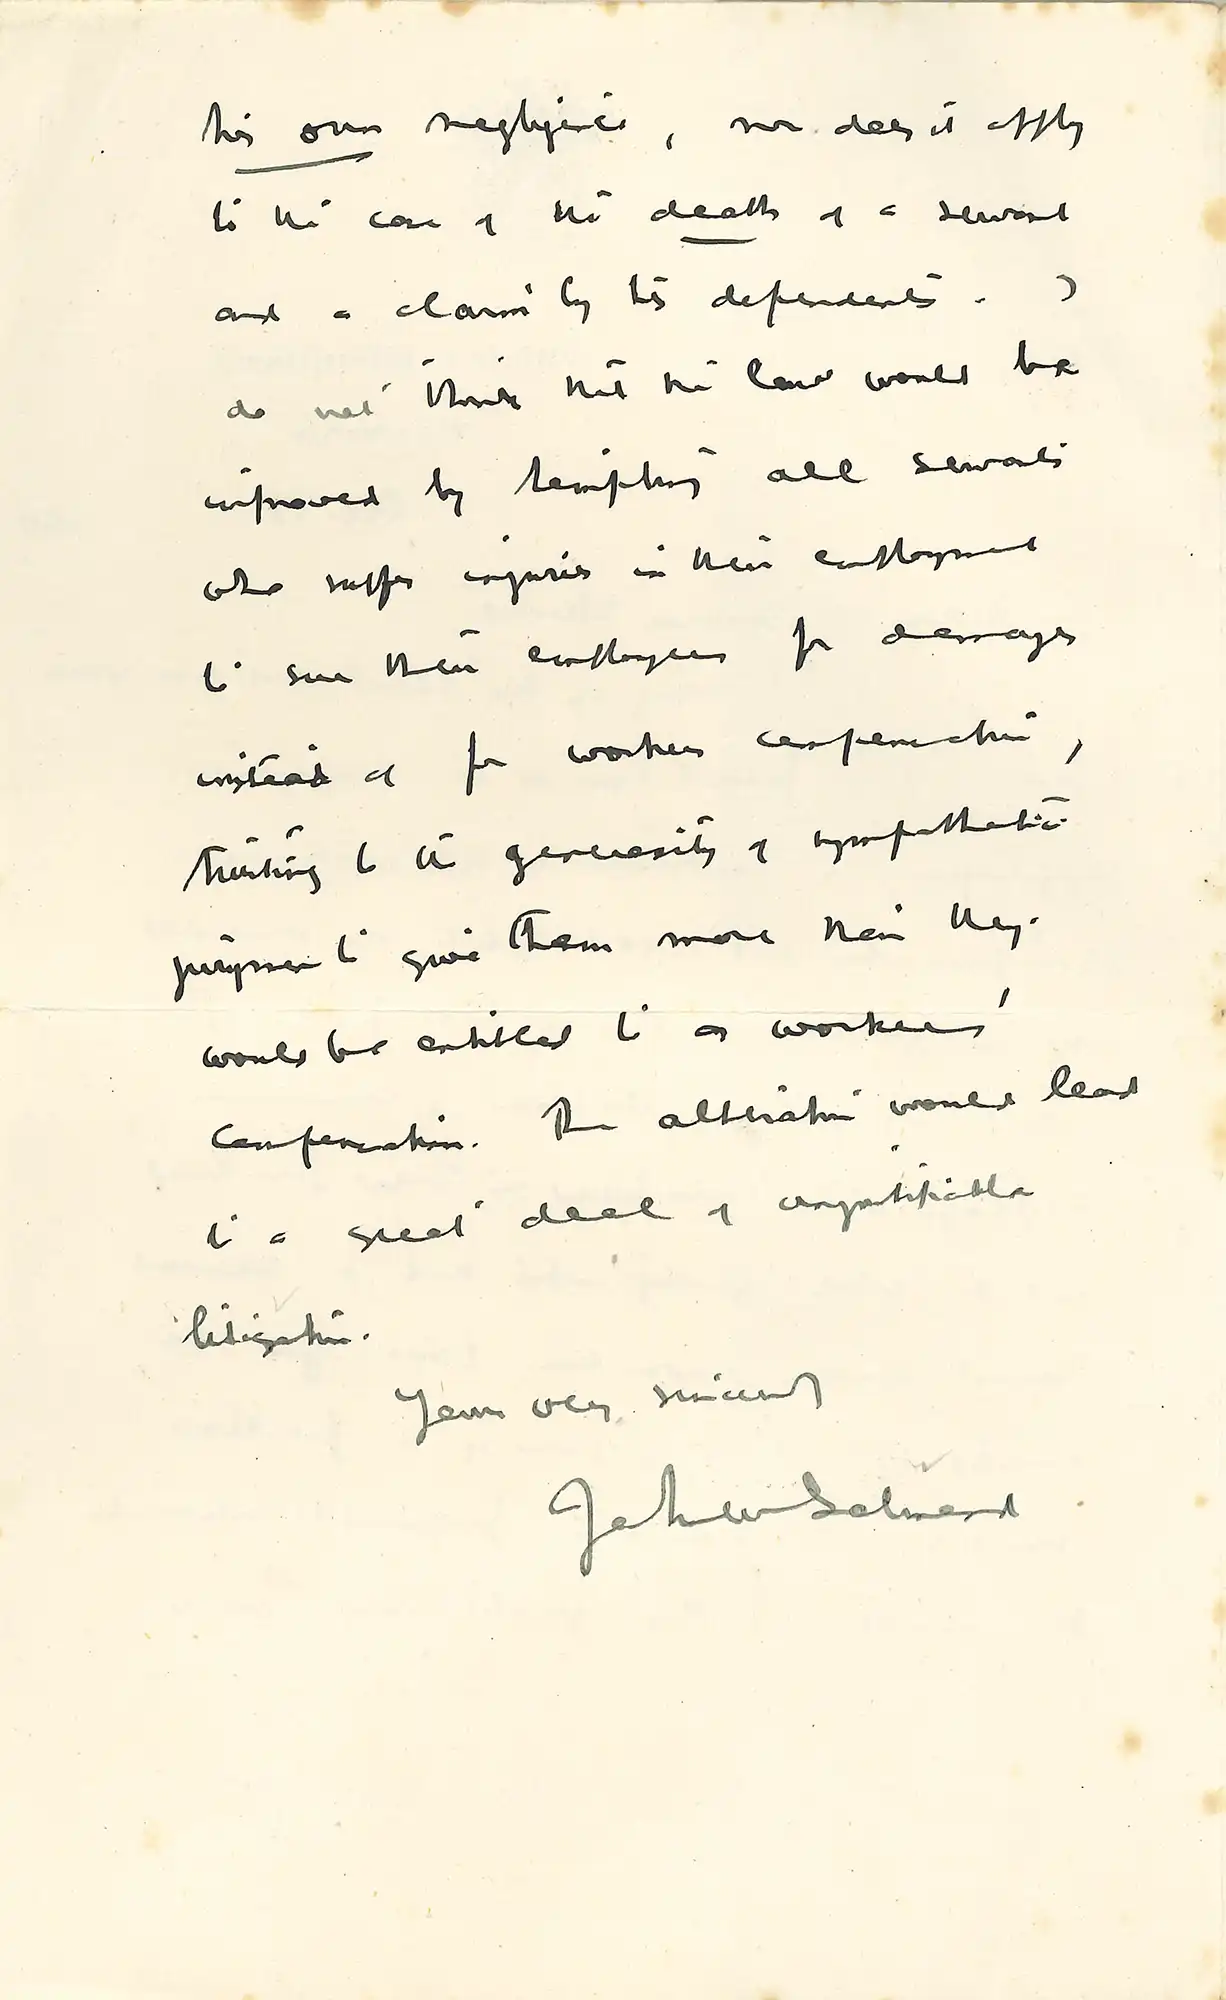 his own negligence, nor does it apply
to the case of the death of a servant
and a claim by his dependents. I
do not think that the law would be
improved by tempting all servants
who suffer injuries in their employment
to sue their employers for damages
instead of for workers compensation,
trusting to the generosity of sympathetic
jurymen to give them more than they
would be entitled to as workers'
compensation. The alteration would lead
to a great deal of unjustifiable
litigation.
Yours very sincerely
John W Salmond